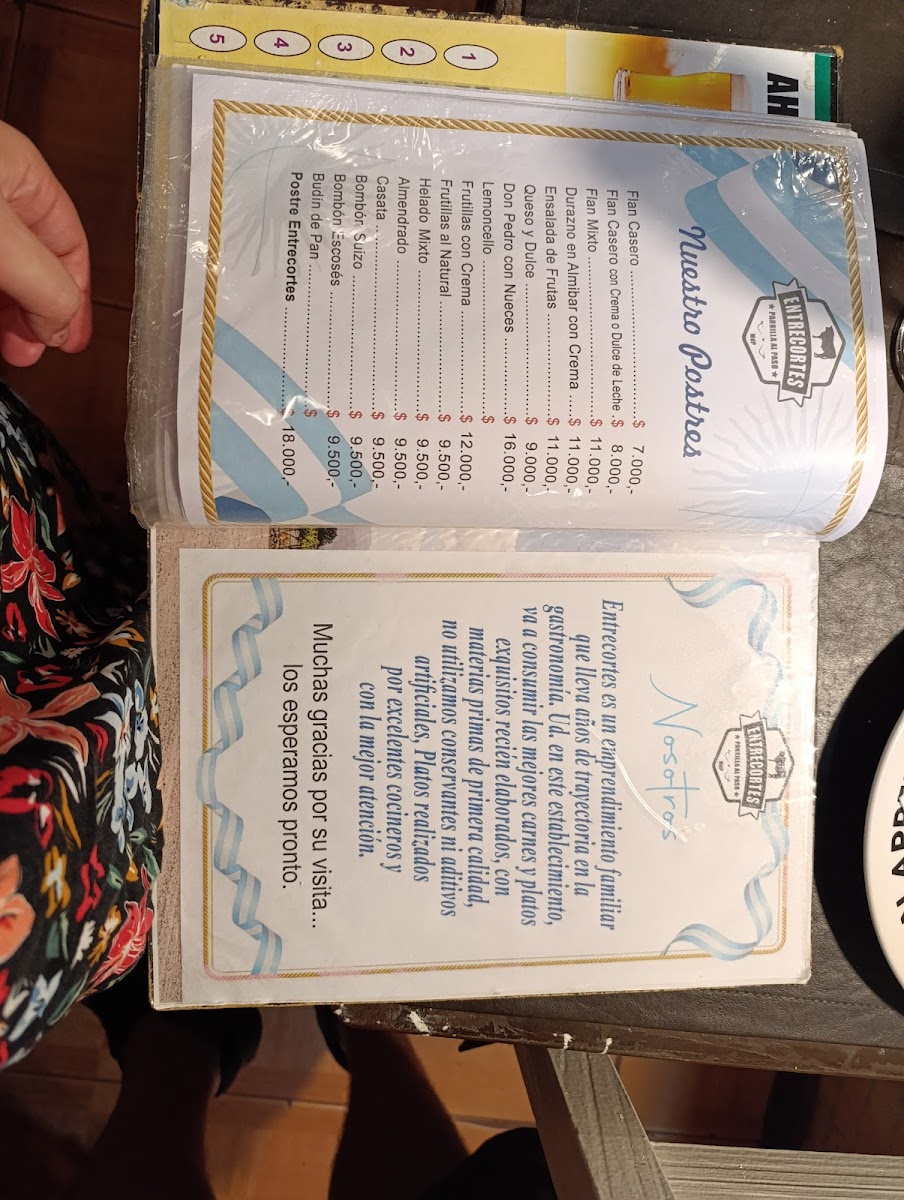 5 4 3 2 1
AH
ENTRECORTES
★ PARRILLA AL PASO ★
MDP
Nuestro Postres
Flan Casero ........................ $ 7.000,-
Flan Casero con Crema o Dulce de Leche $ 8.000,-
Flan Mixto ........................ $ 11.000,-
Durazno en Almibar con Crema ..... $ 11.000,-
Ensalada de Frutas ................ $ 11.000,-
Queso y Dulce ..................... $ 9.000,-
Don Pedro con Nueces .............. $ 16.000,-
Lemoncello ........................ $
Frutillas con Crema ............... $ 12.000,-
Frutillas al Natural .............. $ 9.500,-
Helado Mixto ...................... $ 9.500,-
Almendrado ........................ $ 9.500,-
Casata ............................ $ 9.500,-
Bombón Suizo ...................... $ 9.500,-
Bombón Escosés .................... $ 9.500,-
Budin de Pan ...................... $
Postre Entrecortes ................ $ 18.000,-
ENTRECORTES
★ PARRILLA AL PASO ★
MDP
Nosotros
Entrecortes es un emprendimiento familiar
que lleva años de trayectoria en la
gastronomía. Ud. en este establecimiento,
va a consumir las mejores carnes y platos
exquisitos recién elaborados, con
materias primas de primera calidad,
no utilizamos conservantes ni aditivos
artificiales, Platos realizados
por excelentes cocineros y
con la mejor atención.
Muchas gracias por su visita...
los esperamos pronto.